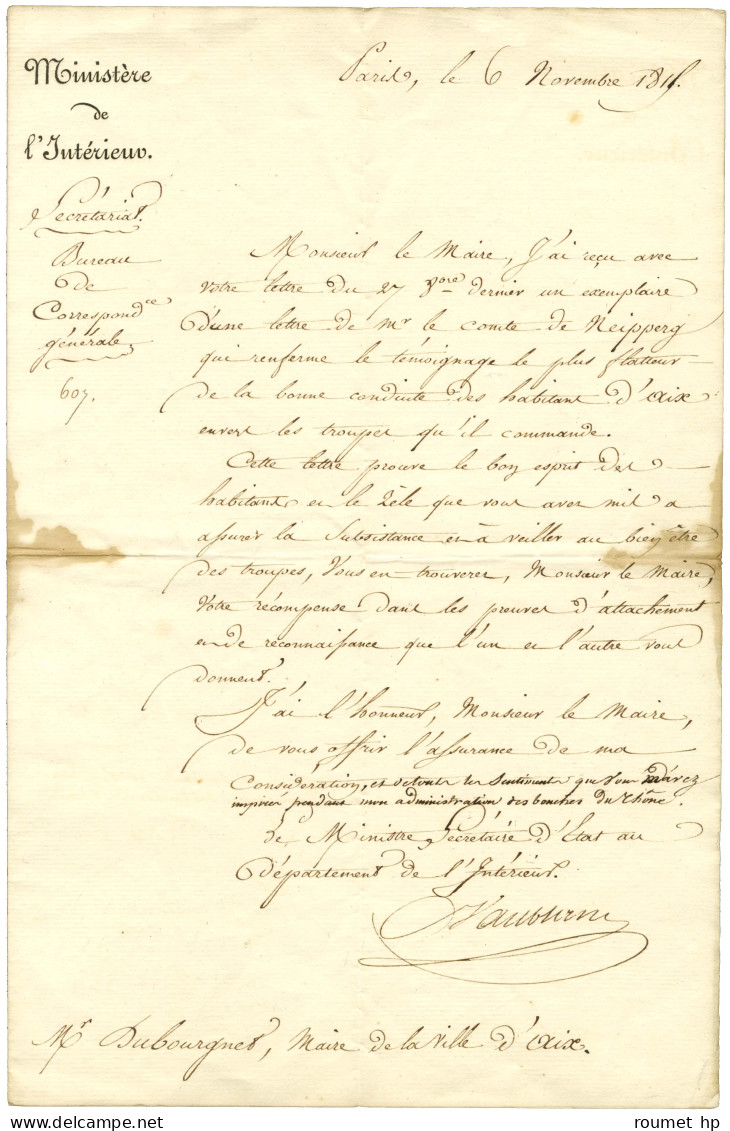 Ministère
de
l'Intérieur.
Paris, le 6 Novembre 1815.
Secrétariat.
Bureau
de
Correspond.ce
générale
607.
Monsieur le Maire, J'ai reçu avec
votre lettre du 27 8bre dernier un exemplaire
d'une lettre de Mr le comte de Neipperg
qui renferme le témoignage le plus flatteur
de la bonne conduite des habitans d'aix
envers les troupes qu'il commande.
Cette lettre prouve le bon esprit des
habitans et le Zèle que vous avez mis a
assurer la Subsistance et à veiller au bien être
des troupes, Vous en trouverez, Monsieur le Maire,
Votre récompense dans les preuves d'attachement
et de reconnaissance que l'un et l'autre vous
donnent.
J'ai l'honneur, Monsieur le Maire,
de vous offrir l'assurance de ma
Considération, et de tous les Sentiments que vous m'avez
inspirés pendant mon administration des bouches du rhône.
Le Ministre Secrétaire d'Etat au
département de l'Intérieur.
Vaublanc
Mr Dubourguet, Maire de la Ville d'aix.
roumet hp